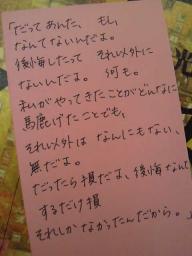 「だってあんた、もし、
なんてないんだよ。
後悔したって それ以外に
ないんだよ。 何も。
私がやってきたことがどんなに
馬鹿げたことでも、
それ以外は なんにもない、
無だよ。
だったら損だよ、後悔なんて
するだけ損
それしかなかったんだから。」